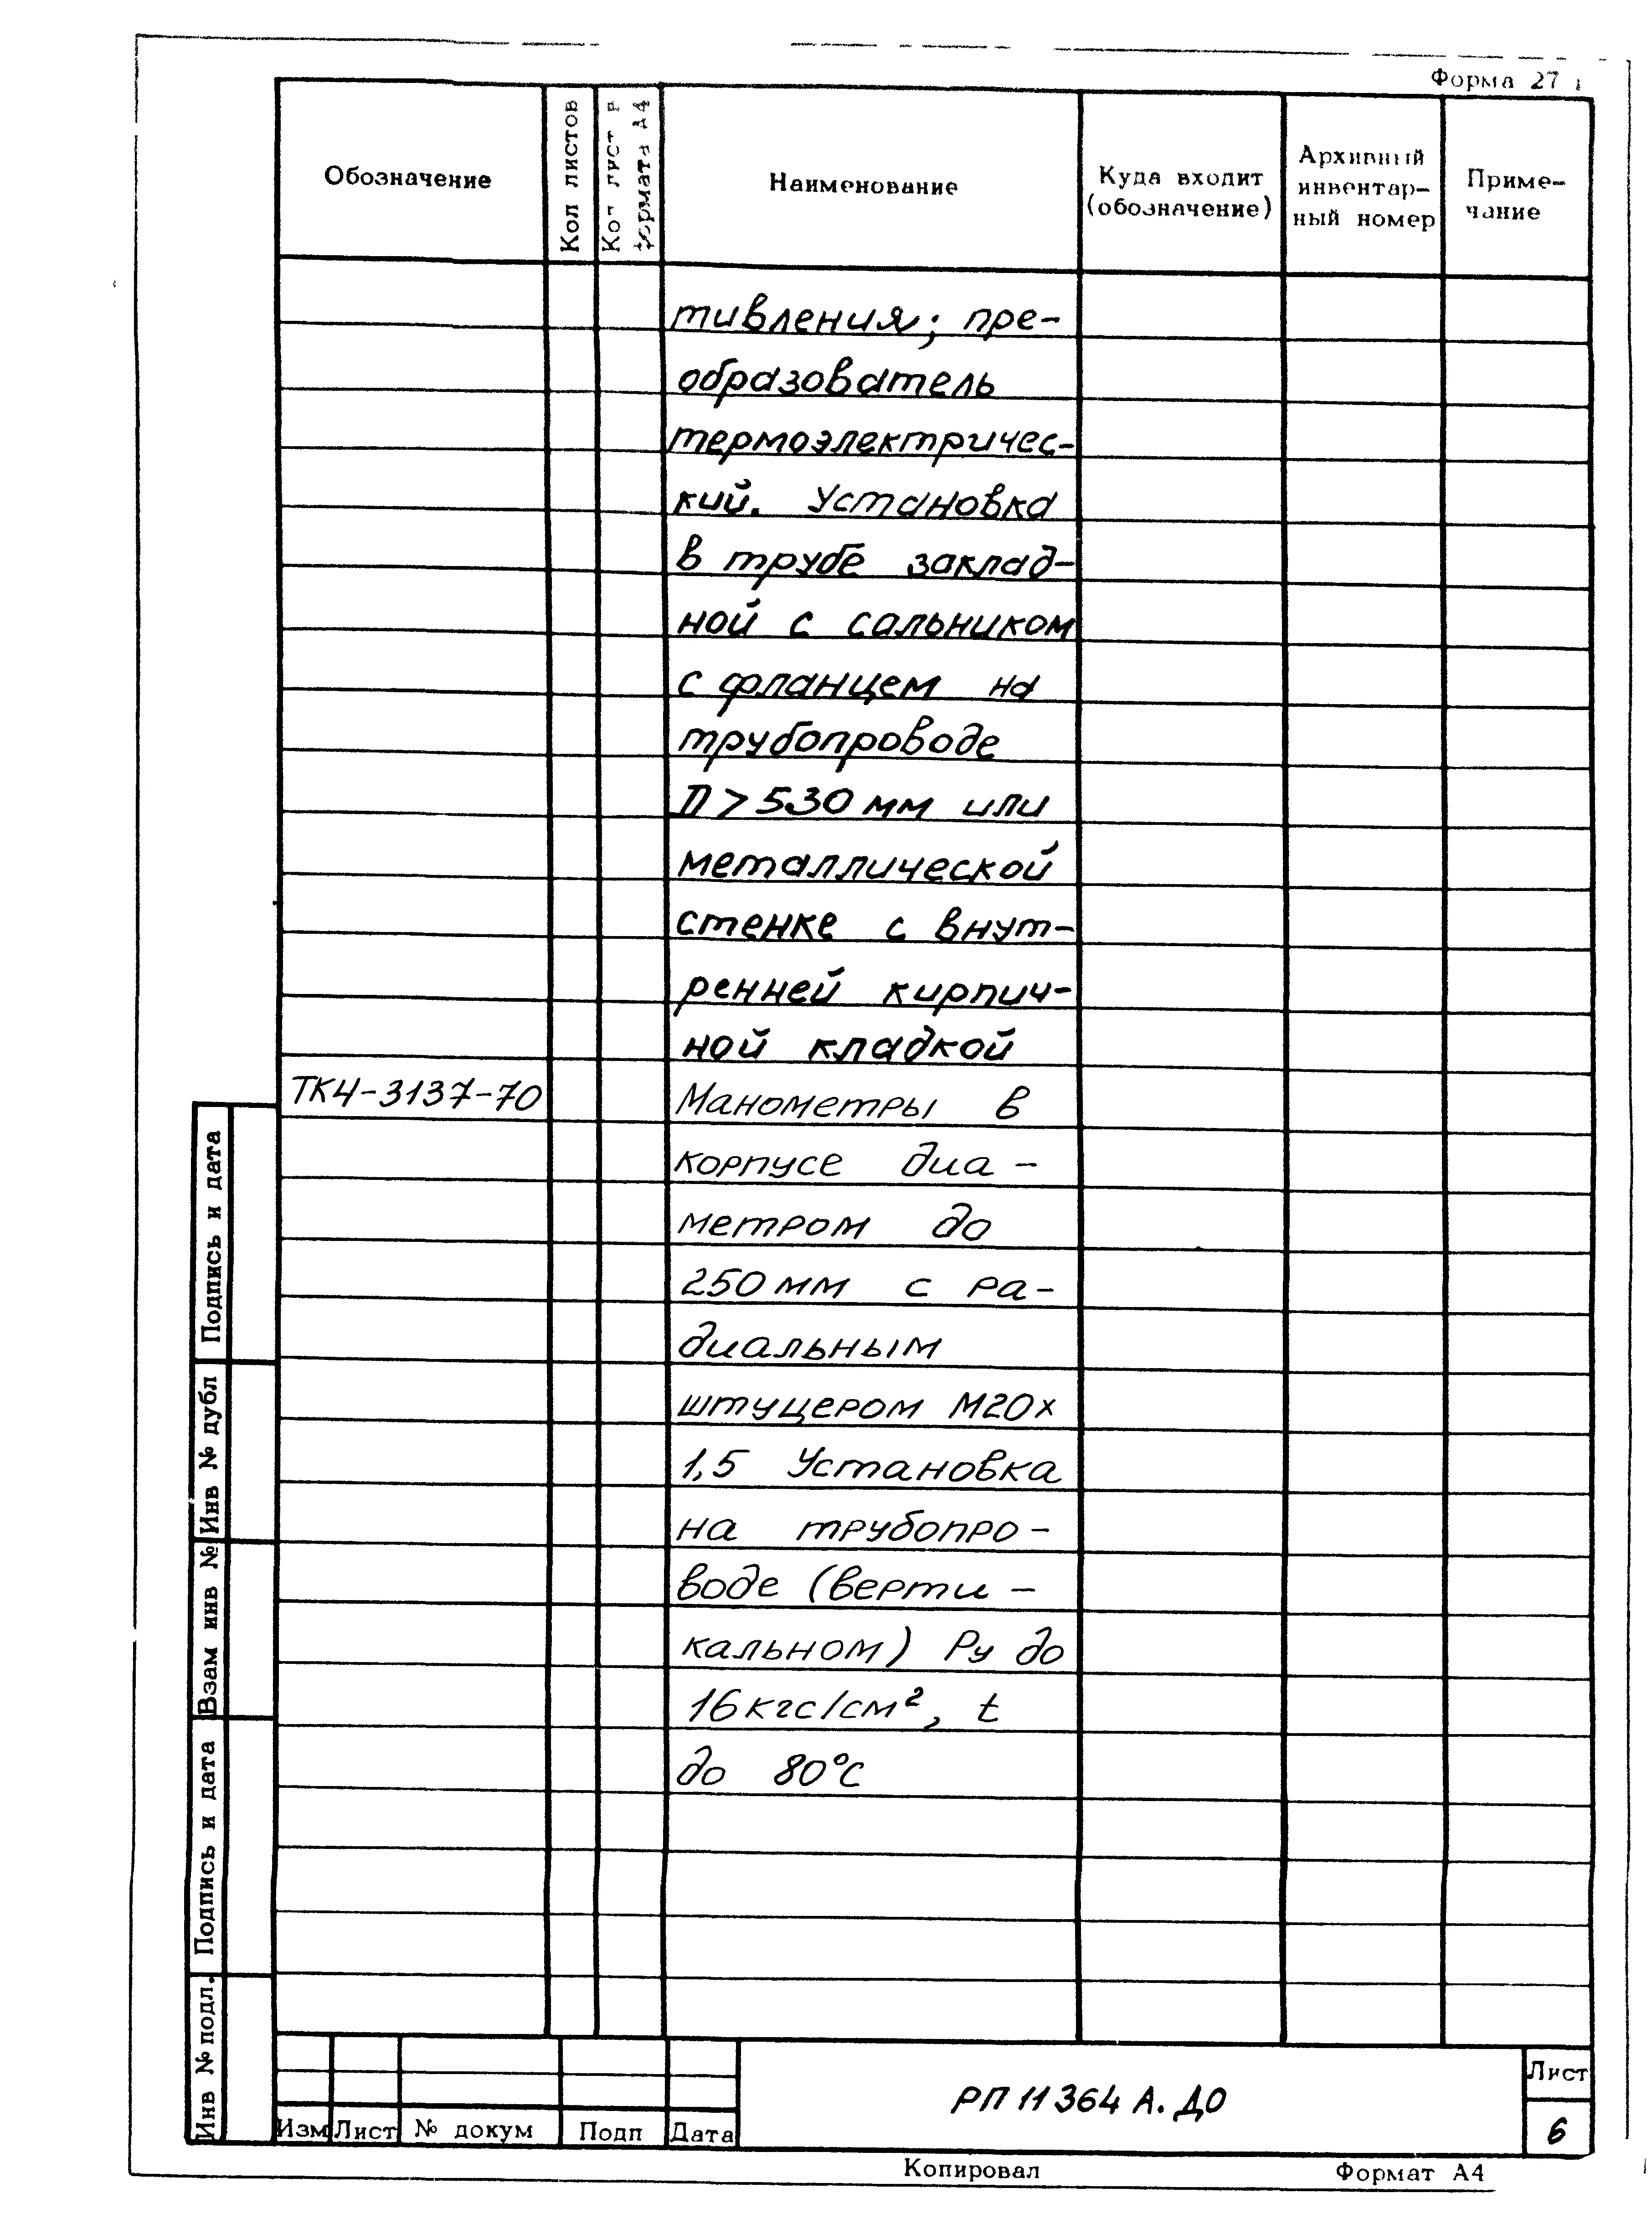 Форма 27
Обозначение
Кол листов
Кол лист в
формата А4
Наименование
Куда входит
(обозначение)
Архивный
инвентар-
ный номер
Приме-
чание
тивления; пре-
образователь
термоэлектричес-
кий. Установка
в трубе заклад-
ной с сальником
с фланцем на
трубопроводе
D > 530 мм или
металлической
стенке с внут-
ренней кирпич-
ной кладкой
ТК4-3137-70 Манометры в
корпусе диа-
метром до
250 мм с ра-
диальным
штуцером М20х
1,5 Установка
на трубопро-
воде (верти-
кальном) Ру до
16 кгс/см², t
до 80°С
Подпись и дата
Инв № дубл
Взам инв №
Подпись и дата
Инв № подл.
Изм Лист № докум Подп Дата
РП 11364 А. ДО
Лист
6
Копировал Формат А4